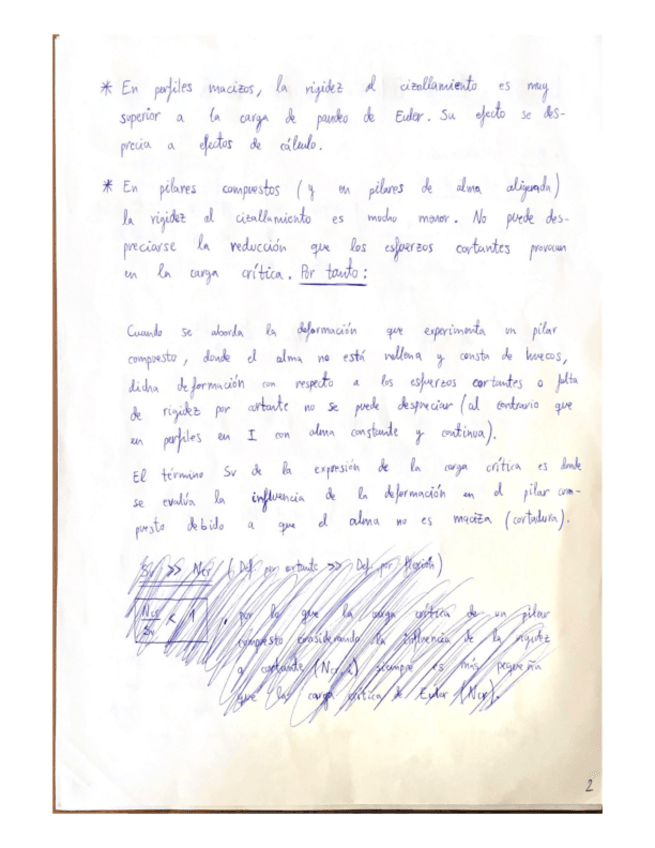 * En perfiles macizos, la rigidez al cizallamiento es muy
superior a la carga de pandeo de Euler. Su efecto se des-
precia a efectos de cálculo.
* En pilares compuestos (y en pilares de alma aligerada)
la rigidez al cizallamiento es mucho menor. No puede des-
preciarse la reducción que los esfuerzos cortantes provocan
en la carga crítica. Por tanto:
Cuando se aborda la deformación que experimenta un pilar
compuesto, donde el alma no está rellena y consta de huecos,
dicha deformación con respecto a los esfuerzos cortantes o falta
de rigidez por cortante no se puede despreciar (al contrario que
en perfiles en I con alma constante y continua).
El término Sv de la expresión de la carga crítica es donde
se evalúa la influencia de la deformación en el pilar com-
puesto debido a que el alma no es maciza (cortadura).
Sv >> Ncr (Def por cortante >> Def por flexión)
Ncr / Sv < 1, por lo que la carga crítica de un pilar
compuesto considerando la influencia de la rigidez
a cortante (Ncr,id) siempre es más pequeña
que la carga crítica de Euler (Ncr).
2